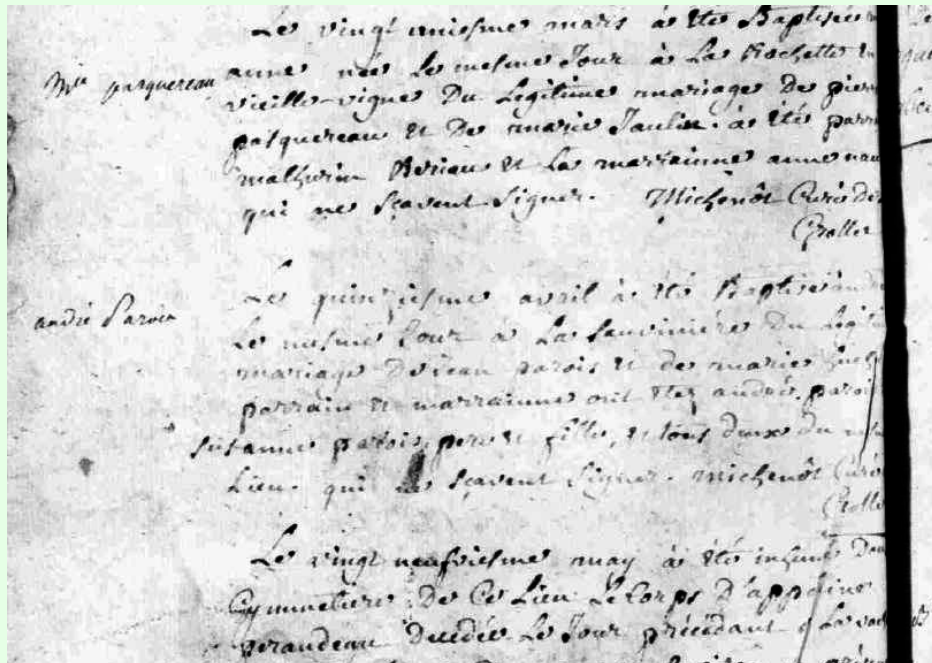 Le vingt uniesme mars à été Baptisée
Mie pasquereau
anne née Le mesme Jour à La Rochette
vieille-vigne Du Legitime mariage De pierr
pasquereau et De marie Jaulin. à été parr
mathurin Reriau et La marrainne anne nau
qui ne sçavent signer. Michenôt Curé des
Crolles
andré Parois
Le quinziesme avril à été Baptisé andr
Le mesme Jour à La sauviniére Du Legiti
mariage De iean parois et de marie
parrain et marrainne ont étez andré parois
susanne parois, pere et fille, et tous deux du
Lieu. qui ne sçavent signer. michenôt Curé
Crolle
Le vingt neufviesme may à été inhumé Dans
Cymmetiere De Ce Lieu Le Corps D'appoline
perandeau Decedée Le Jour précédant